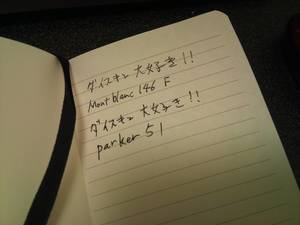 ダイスキン 大好き!!
Montblanc 146 F
ダイスキン 大好き!!
parker 51